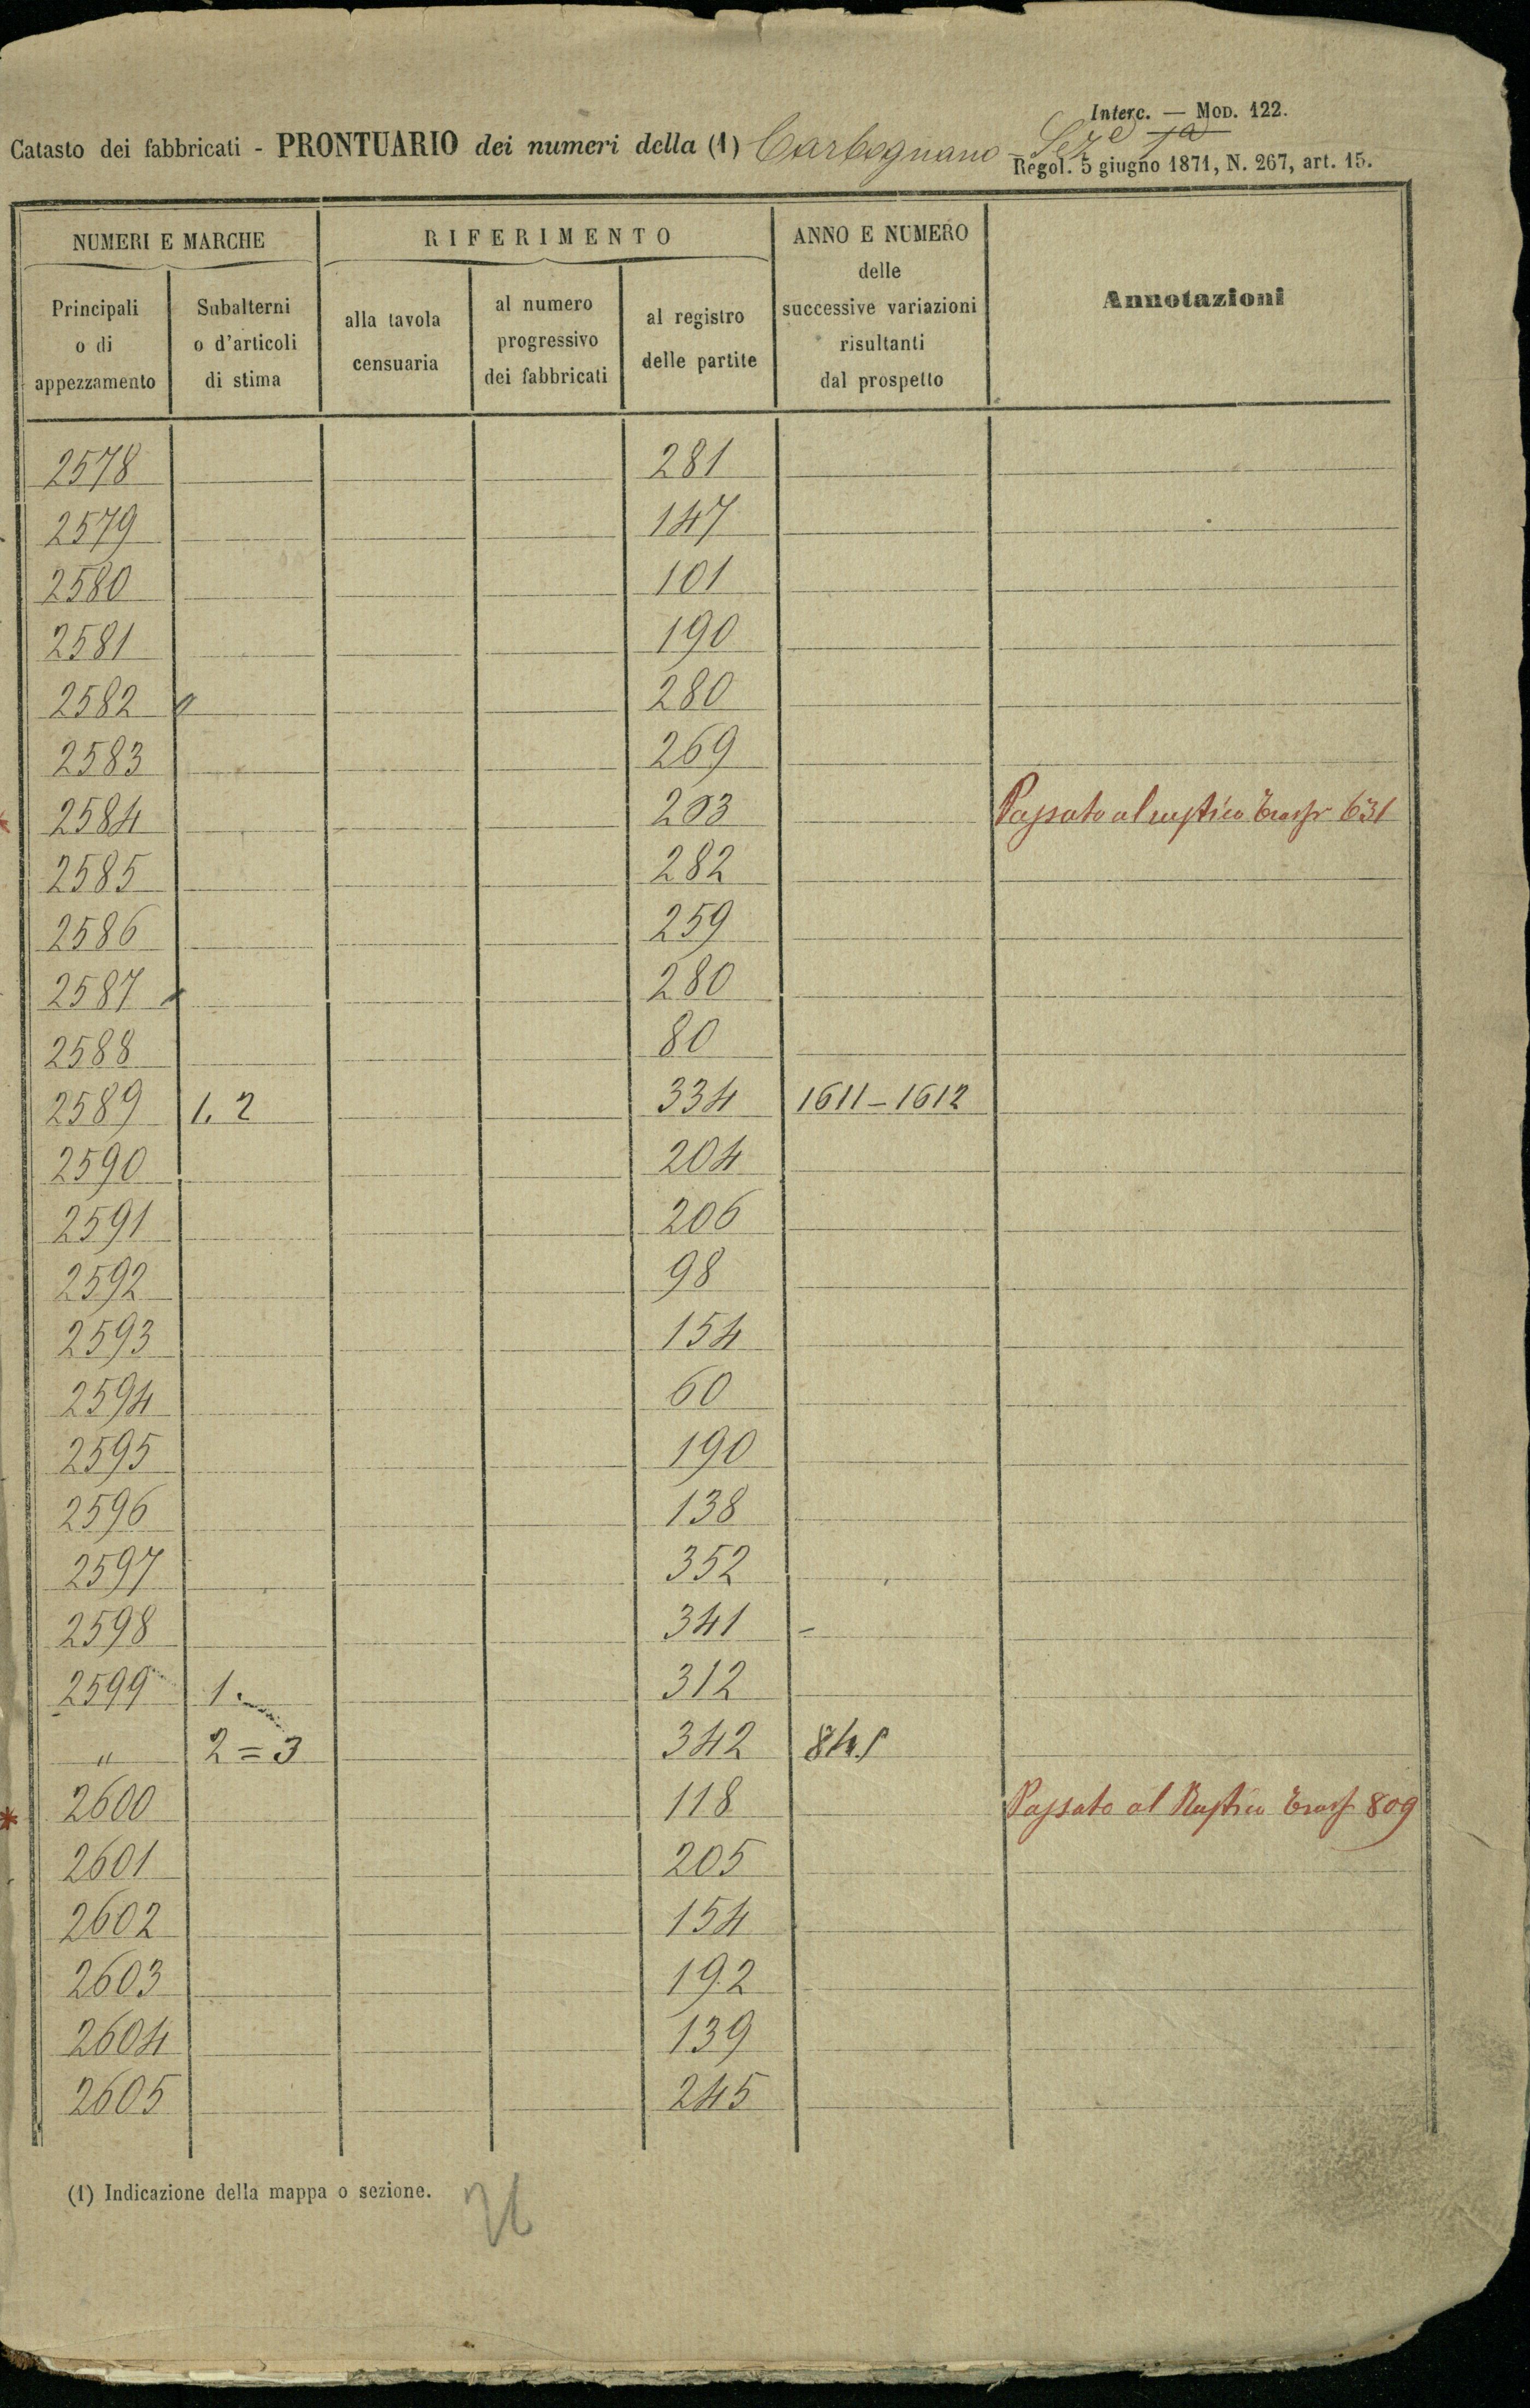 Interc. — Mod. 122.
Catasto dei fabbricati - PRONTUARIO dei numeri della (1) Carbognano - Seze 1a
Regol. 5 giugno 1871, N. 267, art. 15.
NUMERI E MARCHE RIFERIMENTO ANNO E NUMERO delle successive variazioni risultanti dal prospetto Annotazioni
Principali o di appezzamento Subalterni o d'articoli di stima alla tavola censuaria al numero progressivo dei fabbricati al registro delle partite
2578 281
2579 147
2580 101
2581 190
2582 280
2583 269
2584 203 Passato al rustico Trasp 631
2585 282
2586 259
2587 280
2588 80
2589 1. 2 334 1611-1612
2590 204
2591 206
2592 98
2593 154
2594 60
2595 190
2596 138
2597 352
2598 341 -
2599 1. 312
" 2=3 342
* 2600 118 Passato al Rustico Trasp 809
2601 205
2602 154
2603 192
2604 139
2605 245
(1) Indicazione della mappa o sezione.